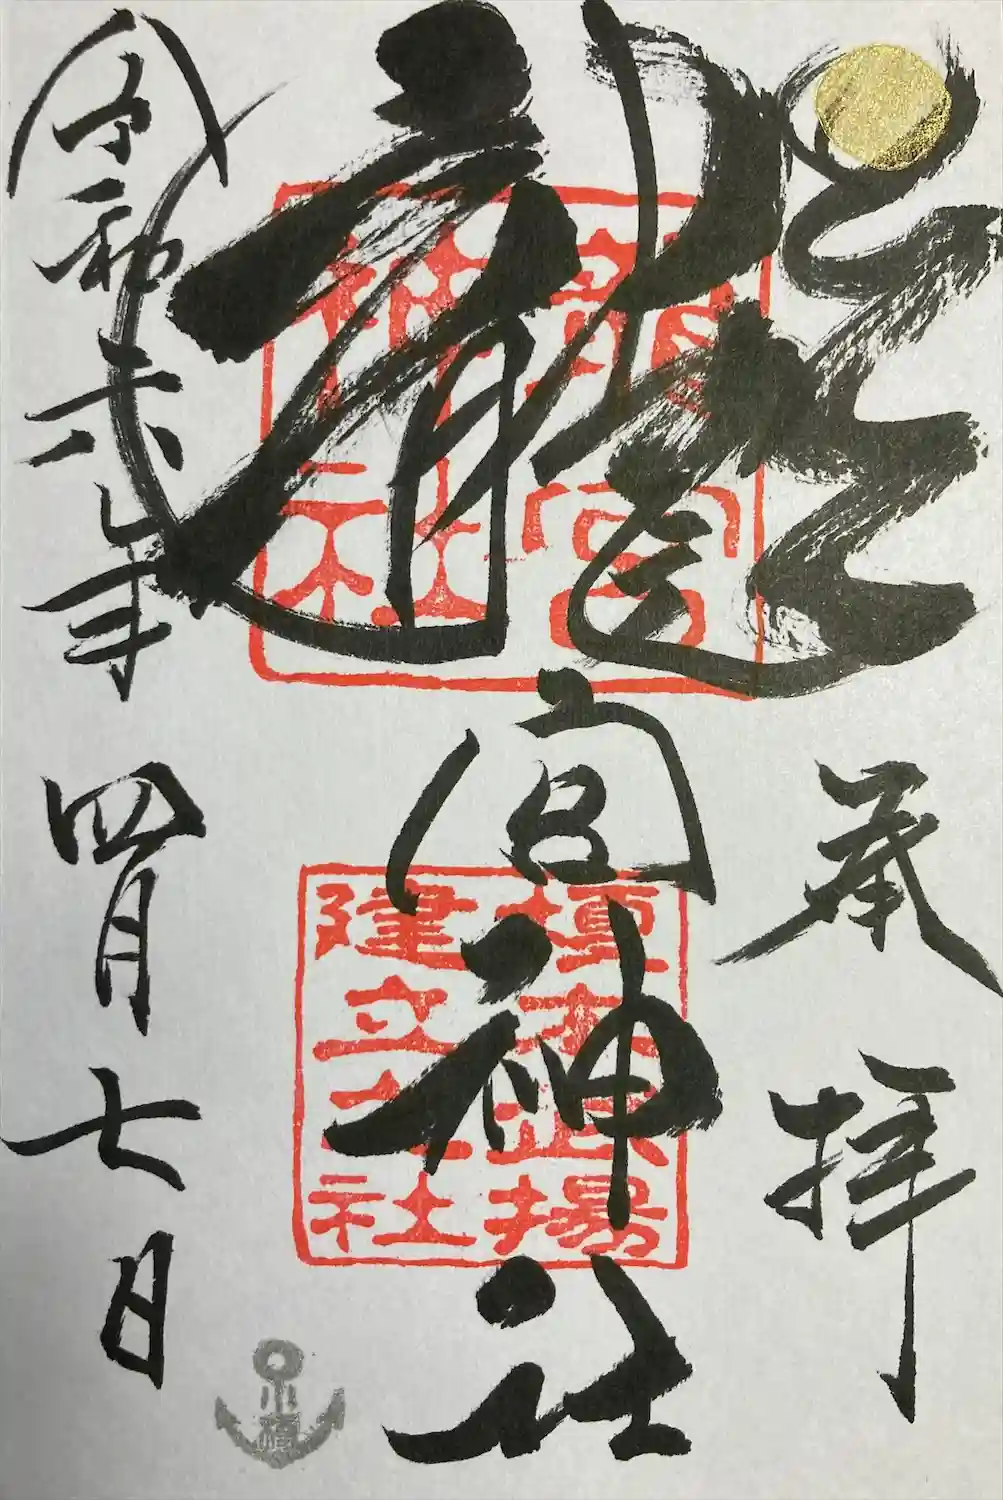 奉拝
龍宮神社
龍宮
神社
榎本武揚
建立之社
令和六年四月七日
小樽